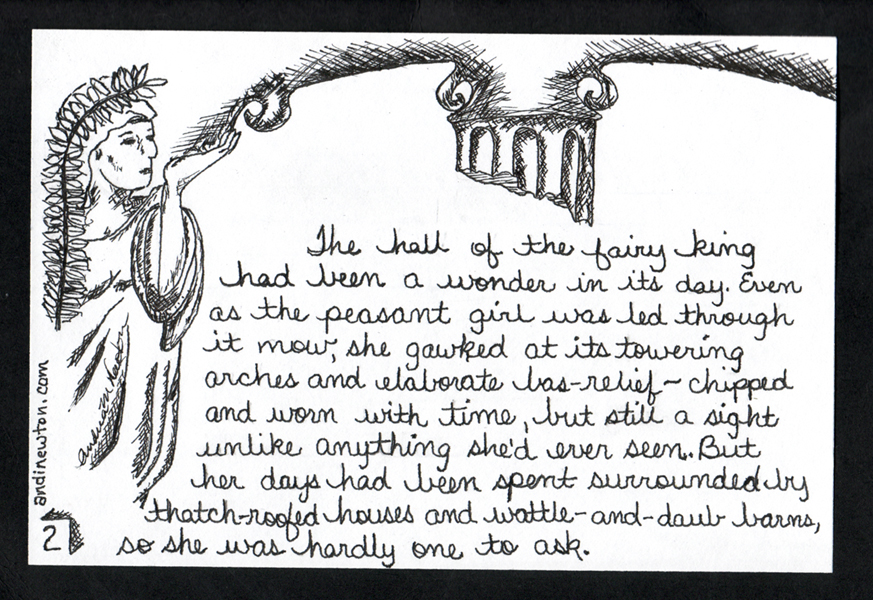 The hall of the fairy king
had been a wonder in its day. Even
as the peasant girl was led through
it now, she gawked at its towering
arches and elaborate bas-relief~chipped
and worn with time, but still a sight
unlike anything she'd ever seen. But
her days had been spent surrounded by
thatch-roofed houses and wattle-and-daub barns,
so she was hardly one to ask.
andinewton.com
Andrea M Newton
2